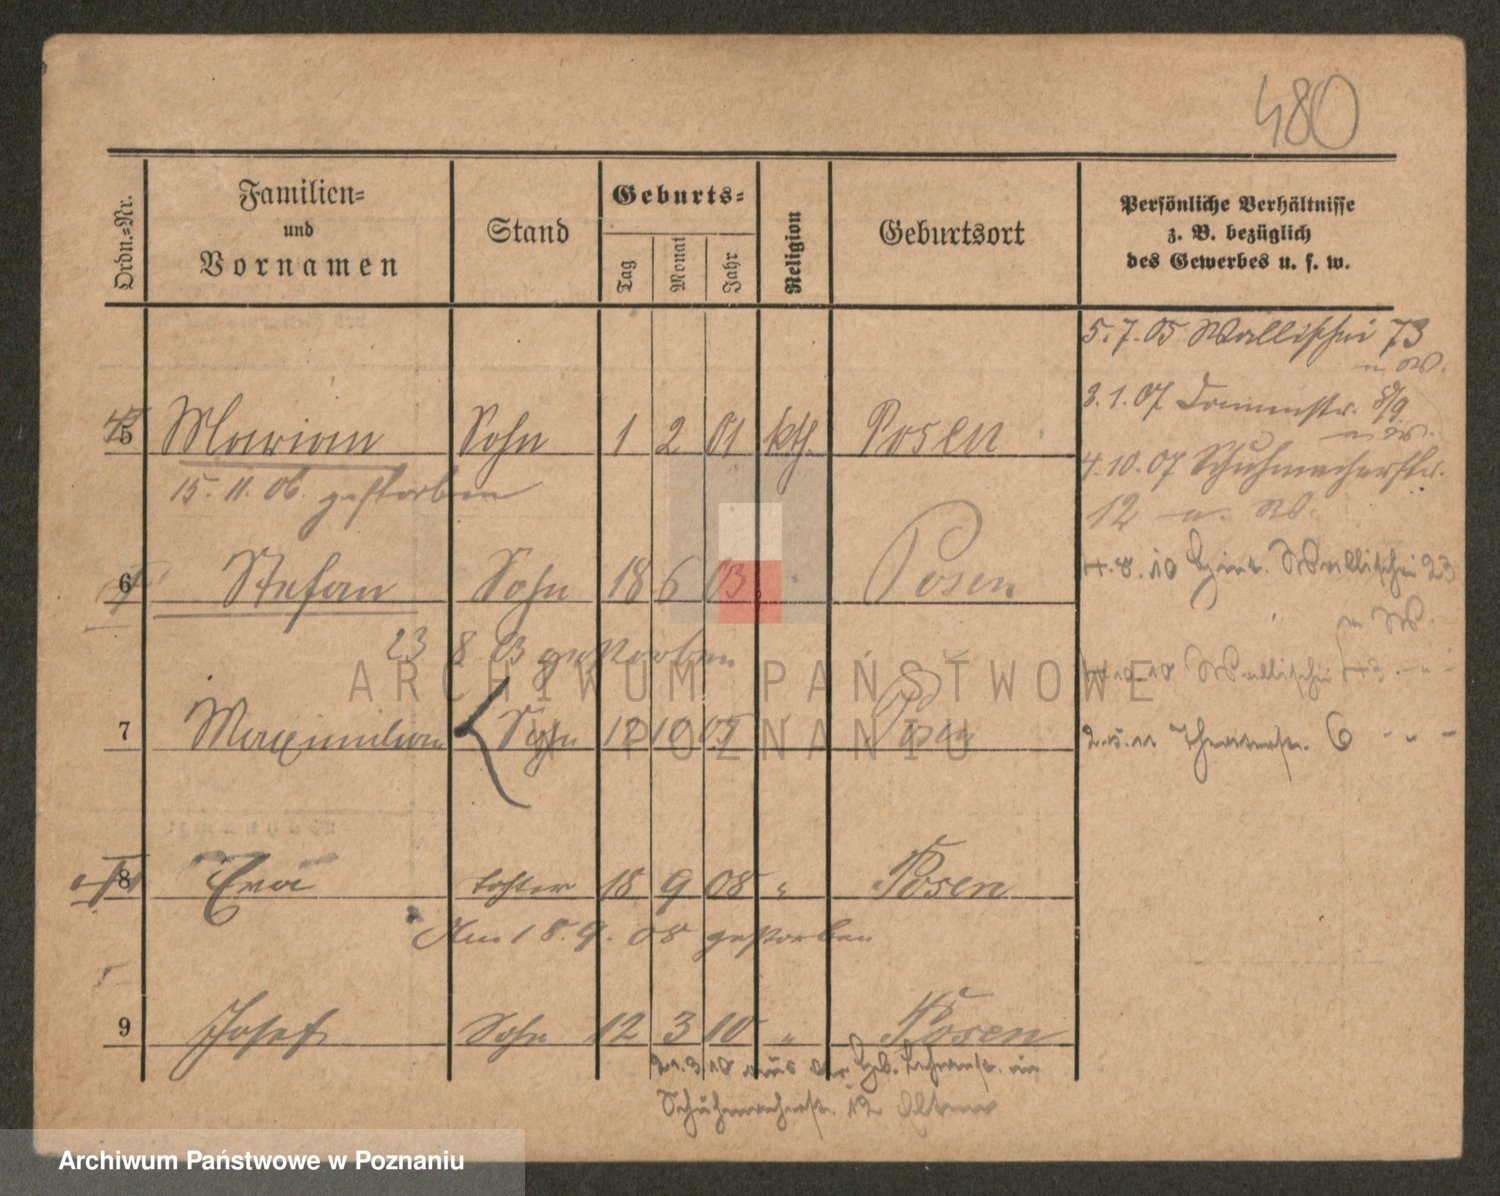 480
Ordn.-Nr.
Familien-
und
Vornamen
Stand
Geburts-
Tag
Monat
Jahr
Religion
Geburtsort
Persönliche Verhältnisse
z. B. bezüglich
des Gewerbes u. s. w.
5.7.05 Wallischei 73
3.1.07 Dammstr. 8/9
5 Marian Sohn 1 2 01 kth. Posen
15.11.06. gestorben
4.10.07 Schuhmacherstr.
12 W.
6 Stefan Sohn 18 6 03 " Posen
4.8.10 Wallischei 23
23 8 03 gestorben
Wallischei 43
7 Maximilian Sohn 12 10 05 " Posen
2.5.11 Theaterstr. 6 - " -
8 Eva Tochter 18 9 08 " Posen
Am 18.9.08 gestorben
9 Josef Sohn 12 3 10 " Posen
21.3.10 aus der
Schuhmacherstr. 12
ARCHIWUM PAŃSTWOWE
W POZNANIU
Archiwum Państwowe w Poznaniu